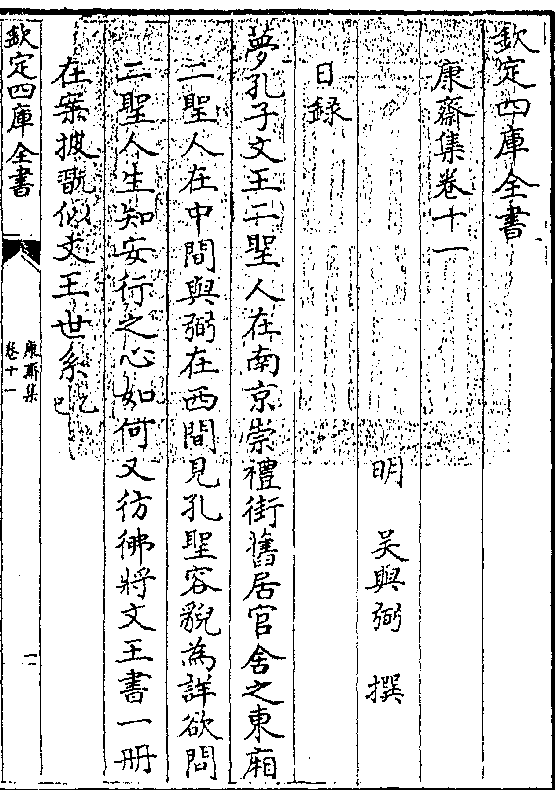 欽定四庫全書
康齋集卷十一
明 吴與弼 撰
日録
夢孔子文王二聖人在南京崇禮街舊居官舍之東廂
二聖人在中間與弼在西間見孔聖容貌為詳欲問
二聖人生知安行之心如何又彷彿將文王書一册
在案披翫似文王世系乙巳
欽定四庫全書
康齋集
卷十一
一